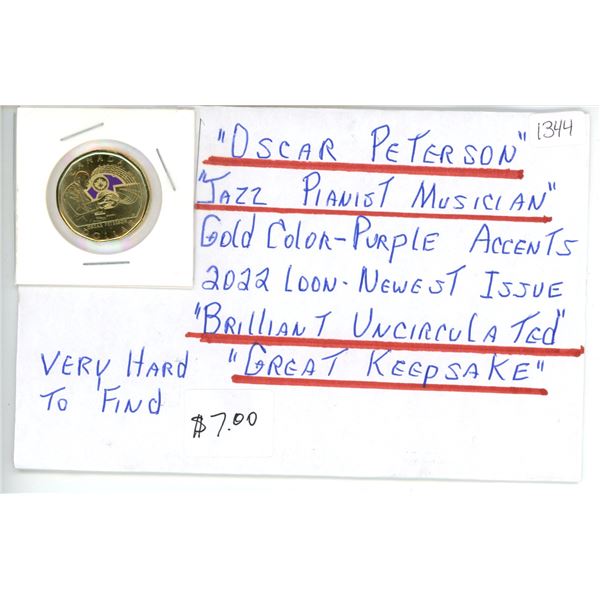 1344
"OSCAR PETERSON"
"JAZZ PIANIST MUSICIAN"
Gold Color-Purple Accents
2022 Loon-Newest Issue
"Brilliant Uncirculated"
"Great Keepsake"
Very Hard
To Find
$7.00
CANADA